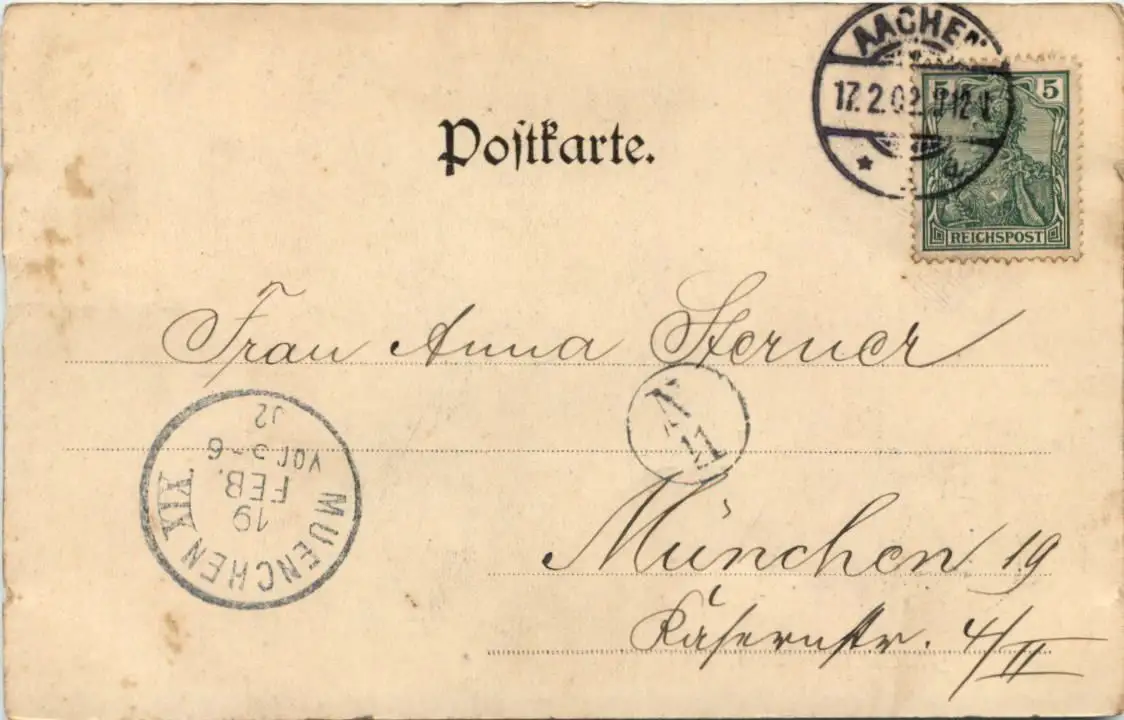 AACHEN
17.2.02. 12 V.
5 5
REICHSPOST
Postkarte.
Frau Anna Sterner
N
11
München 19
Käsernstr. 4/II
MUENCHEN XIX
19
FEB.
VOR 5-6
02